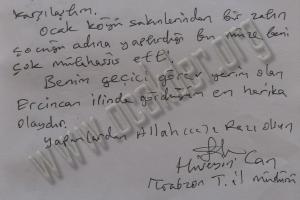 karşılaştım.
Ocak köyü sakinlerinden bir zatın
çocuğu adına yaptırdığı bu müze beni
çok mütehassis etti.
Benim geçici görev yerim olan
Erzincan ilinde gördüğüm en harika
olaydır.
Yapanlardan Allah (cc) Razı olsun
Hüseyin Can
Trabzon T. il müdürü